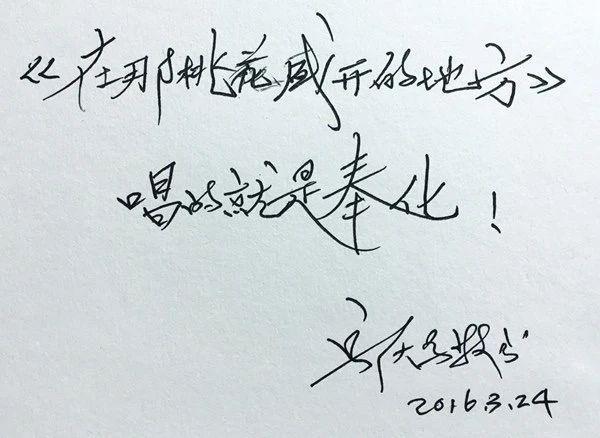 《在那桃花盛开的地方》
唱的就是奉化！
2016.3.24